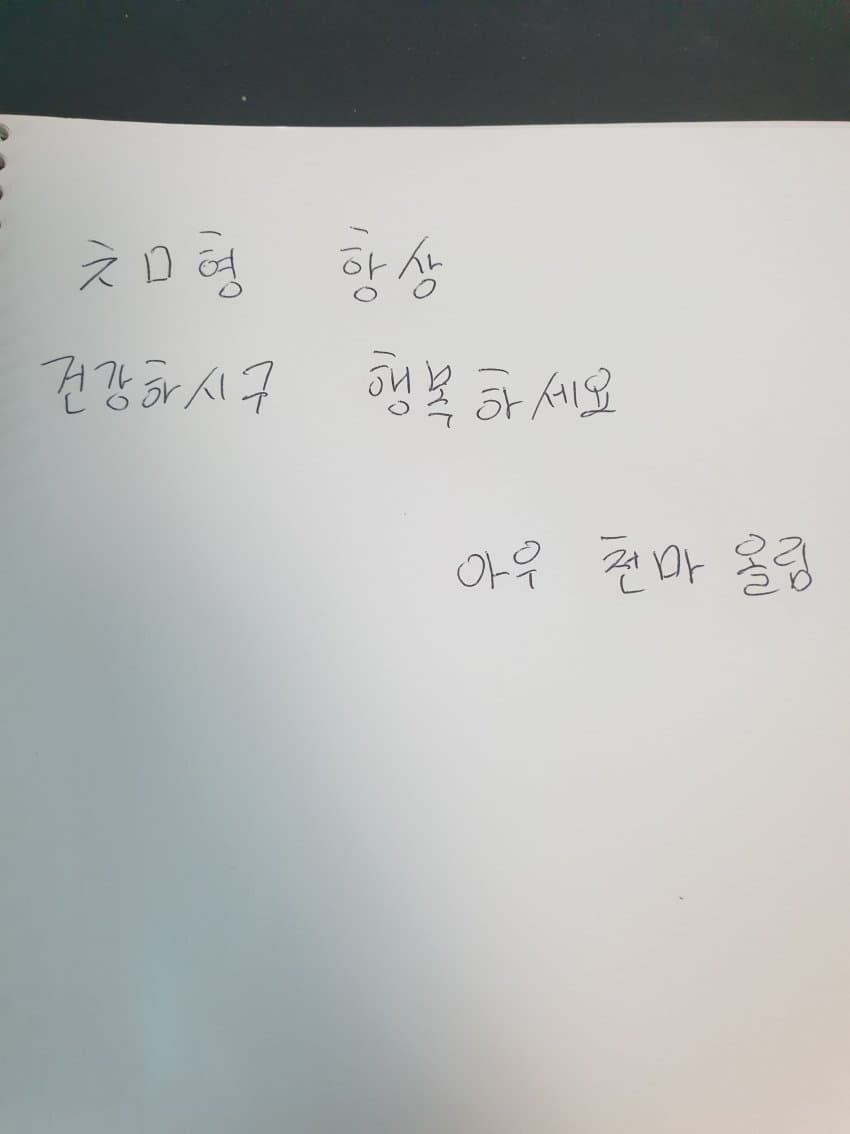 ㅊㅁ형 항상
건강하시구 행복하세요
아우 천마 올림